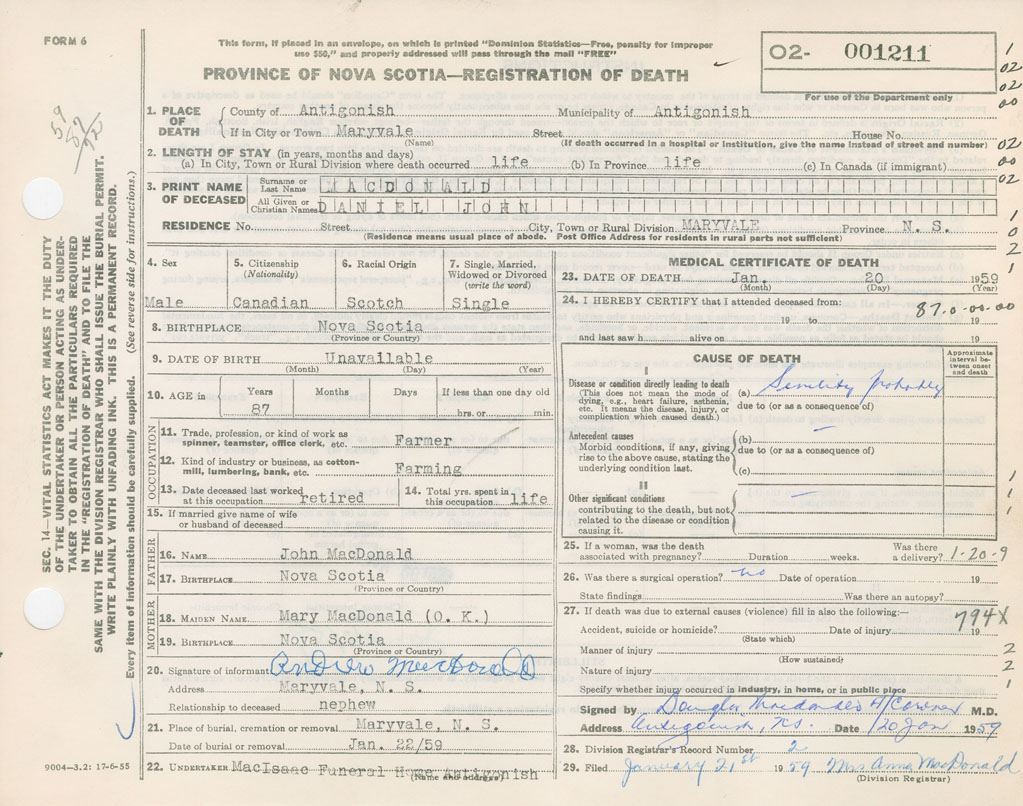 FORM 6
This form, if placed in an envelope, on which is printed "Dominion Statistics—Free, penalty for improper
use $50," and properly addressed will pass through the mail "FREE"
PROVINCE OF NOVA SCOTIA—REGISTRATION OF DEATH
02- 001211
For use of the Department only
1. PLACE OF DEATH County of Antigonish Municipality of Antigonish
If in City or Town Maryvale Street House No.
(Name) (If death occurred in a hospital or institution, give the name instead of street and number)
2. LENGTH OF STAY (in years, months and days)
(a) In City, Town or Rural Division where death occurred life (b) In Province life (c) In Canada (if immigrant)
3. PRINT NAME OF DECEASED Surname or Last Name MACDONALD
All Given or Christian Names DANIEL JOHN
RESIDENCE No. Street City, Town or Rural Division MARYVALE Province N. S.
(Residence means usual place of abode. Post Office Address for residents in rural parts not sufficient)
4. Sex Male
5. Citizenship (Nationality) Canadian
6. Racial Origin Scotch
7. Single, Married, Widowed or Divorced (write the word) Single
8. BIRTHPLACE Nova Scotia
(Province or Country)
9. DATE OF BIRTH Unavailable
(Month) (Day) (Year)
10. AGE in Years 87 Months Days If less than one day old hrs. or min.
OCCUPATION
11. Trade, profession, or kind of work as spinner, teamster, office clerk, etc. Farmer
12. Kind of industry or business, as cotton-mill, lumbering, bank, etc. Farming
13. Date deceased last worked at this occupation retired
14. Total yrs. spent in this occupation life
15. If married give name of wife or husband of deceased
FATHER
16. NAME John MacDonald
17. BIRTHPLACE Nova Scotia
(Province or Country)
MOTHER
18. MAIDEN NAME Mary MacDonald (O. K.)
19. BIRTHPLACE Nova Scotia
(Province or Country)
20. Signature of informant Andrew MacDonald
Address Maryvale, N. S.
Relationship to deceased nephew
21. Place of burial, cremation or removal Maryvale, N. S.
Date of burial or removal Jan. 22/59
22. UNDERTAKER MacIsaac Funeral Home Antigonish
(Name and address)
9004—3.2: 17-6-55
MEDICAL CERTIFICATE OF DEATH
23. DATE OF DEATH Jan. 20 1959
(Month) (Day) (Year)
24. I HEREBY CERTIFY that I attended deceased from: 87.0-00.00
19 to 19
and last saw h alive on 19
CAUSE OF DEATH
Approximate interval between onset and death
I
Disease or condition directly leading to death
(This does not mean the mode of dying, e.g., heart failure, asthenia, etc. It means the disease, injury, or complication which caused death.)
(a) Senility probably
due to (or as a consequence of)
Antecedent causes
Morbid conditions, if any, giving rise to the above cause, stating the underlying condition last.
(b) —
due to (or as a consequence of)
(c)
II
Other significant conditions
contributing to the death, but not related to the disease or condition causing it. —
25. If a woman, was the death associated with pregnancy? Duration weeks. Was there a delivery? 1-20-9
26. Was there a surgical operation? no Date of operation 19
State findings Was there an autopsy?
27. If death was due to external causes (violence) fill in also the following:— 794X
Accident, suicide or homicide? Date of injury 19
(State which)
Manner of injury
(How sustained)
Nature of injury
Specify whether injury occurred in industry, in home, or in public place
Signed by Douglas MacDonald A/Coroner M.D.
Address Antigonish, N.S. Date 20 Jan 1959
28. Division Registrar's Record Number 2
29. Filed January 21st 1959 Mrs Anna MacDonald
(Division Registrar)
SEC. 14—VITAL STATISTICS ACT MAKES IT THE DUTY
OF THE UNDERTAKER OR PERSON ACTING AS UNDER-
TAKER TO OBTAIN ALL THE PARTICULARS REQUIRED
IN THE "REGISTRATION OF DEATH" AND TO FILE THE
SAME WITH THE DIVISION REGISTRAR WHO SHALL ISSUE THE BURIAL PERMIT.
WRITE PLAINLY WITH UNFADING INK. THIS IS A PERMANENT RECORD.
Every item of information should be carefully supplied. (See reverse side for instructions.)
59
1
02
02
00
02
00
02
1
0
2
1
1
1
1
2
2
1